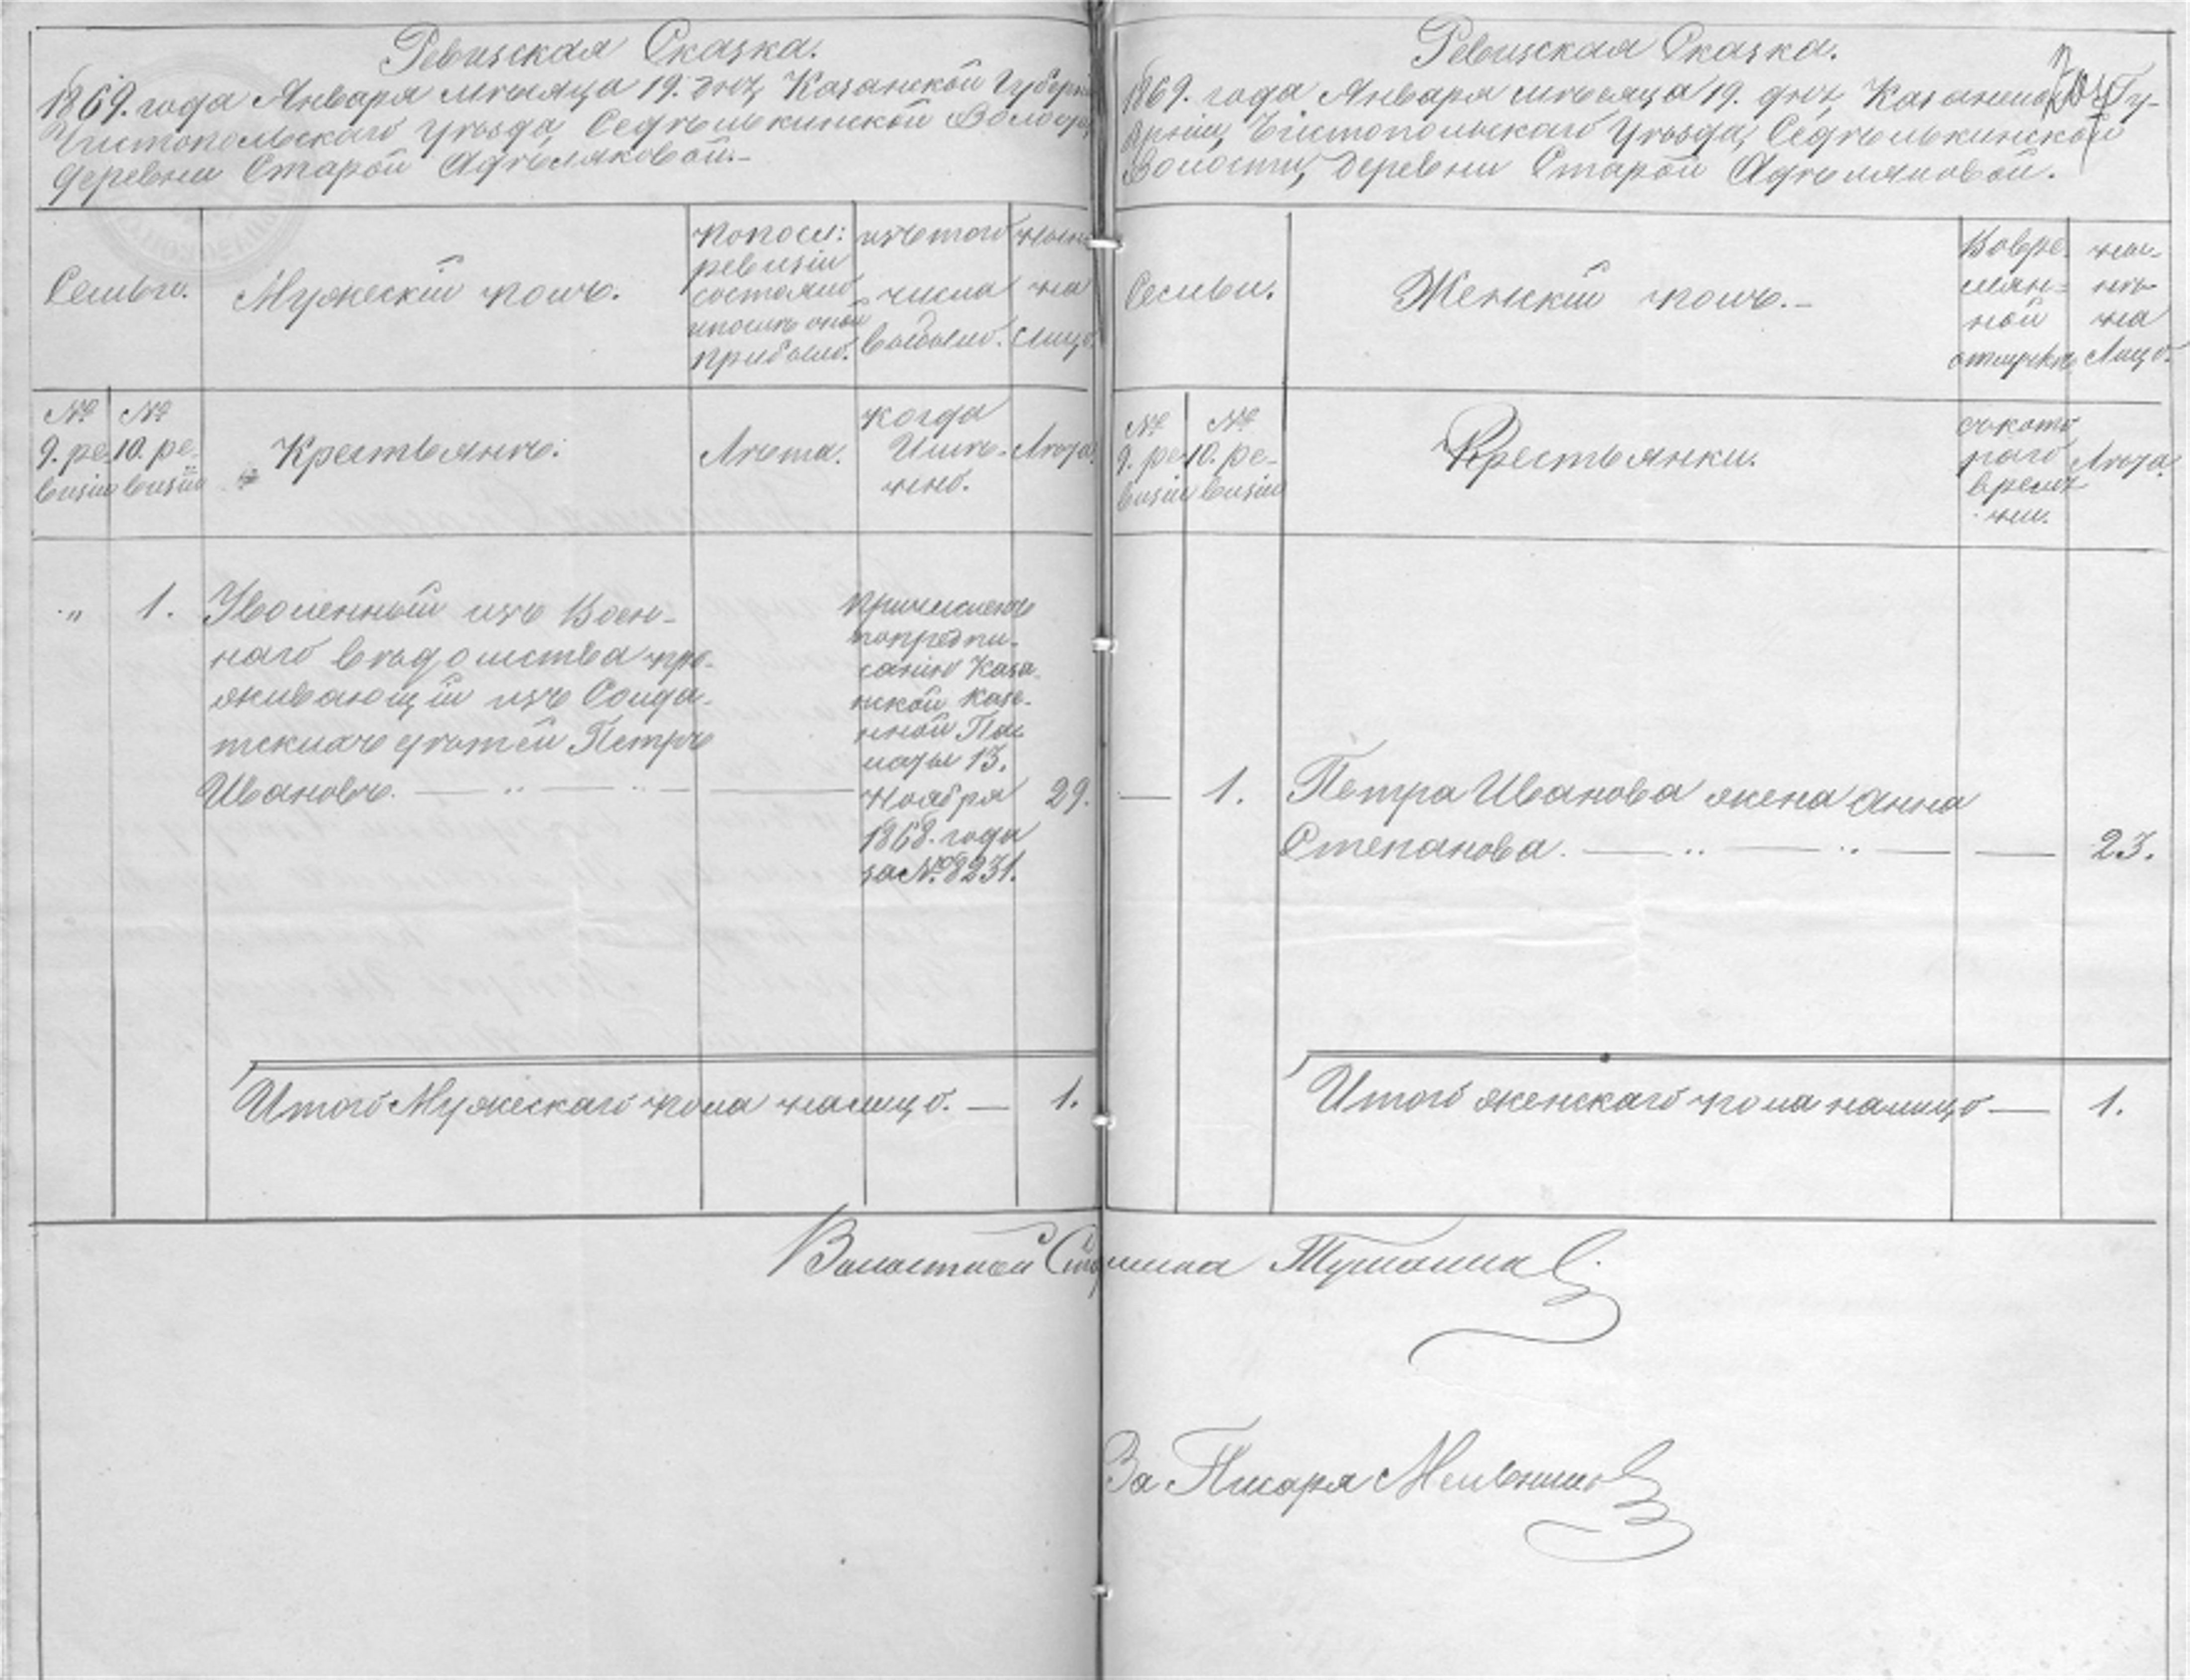 Ревизская Сказка.
1869. года Января мѣсяца 19. дня, Казанской Губерніи
Чистопольскаго Уѣзда, Седѣлькинской Волости,
деревни Старой Адѣляковой.-
Семьи.
Мужескій полъ.
по посл:
ревизіи
состояло
и послѣ оной
прибыло.
изъ того
числа
выбыло.
нынѣ
на
лицо.
№
9. ре-
визіи
№
10. ре-
визіи
Крестьянъ.
Лѣта.
когда
Имя-
нно.
Лѣта.
„ 1. Уволенный изъ Воен-
наго вѣдомства про-
живающій изъ Солда-
тскихъ дѣтей Петръ
Ивановъ. 29.
причисленъ
по предпи-
санію Каза-
нской казе-
нной Па-
латы 13.
Ноября
1868. года
за № 8231.
Итого Мужескаго пола налицо. — 1.
Ревизская Сказка.
1869. года Января мѣсяца 19. дня, Казанской Гу-
берніи, Чистопольскаго Уѣзда, Седѣлькинской
Волости, деревни Старой Адѣляковой.
Семьи.
Женскій полъ.-
Во вре-
мян-
ной
отлучкѣ
ны-
нѣ
на
Лицо.
№
9. ре-
визіи
№
10. ре-
визіи
Крестьянки.
съ кото-
раго
време-
ни.
Лѣта.
— 1. Петра Иванова жена Анна
Степанова. 23.
Итого женскаго пола налицо — 1.
Волостной Старшина
За Писаря